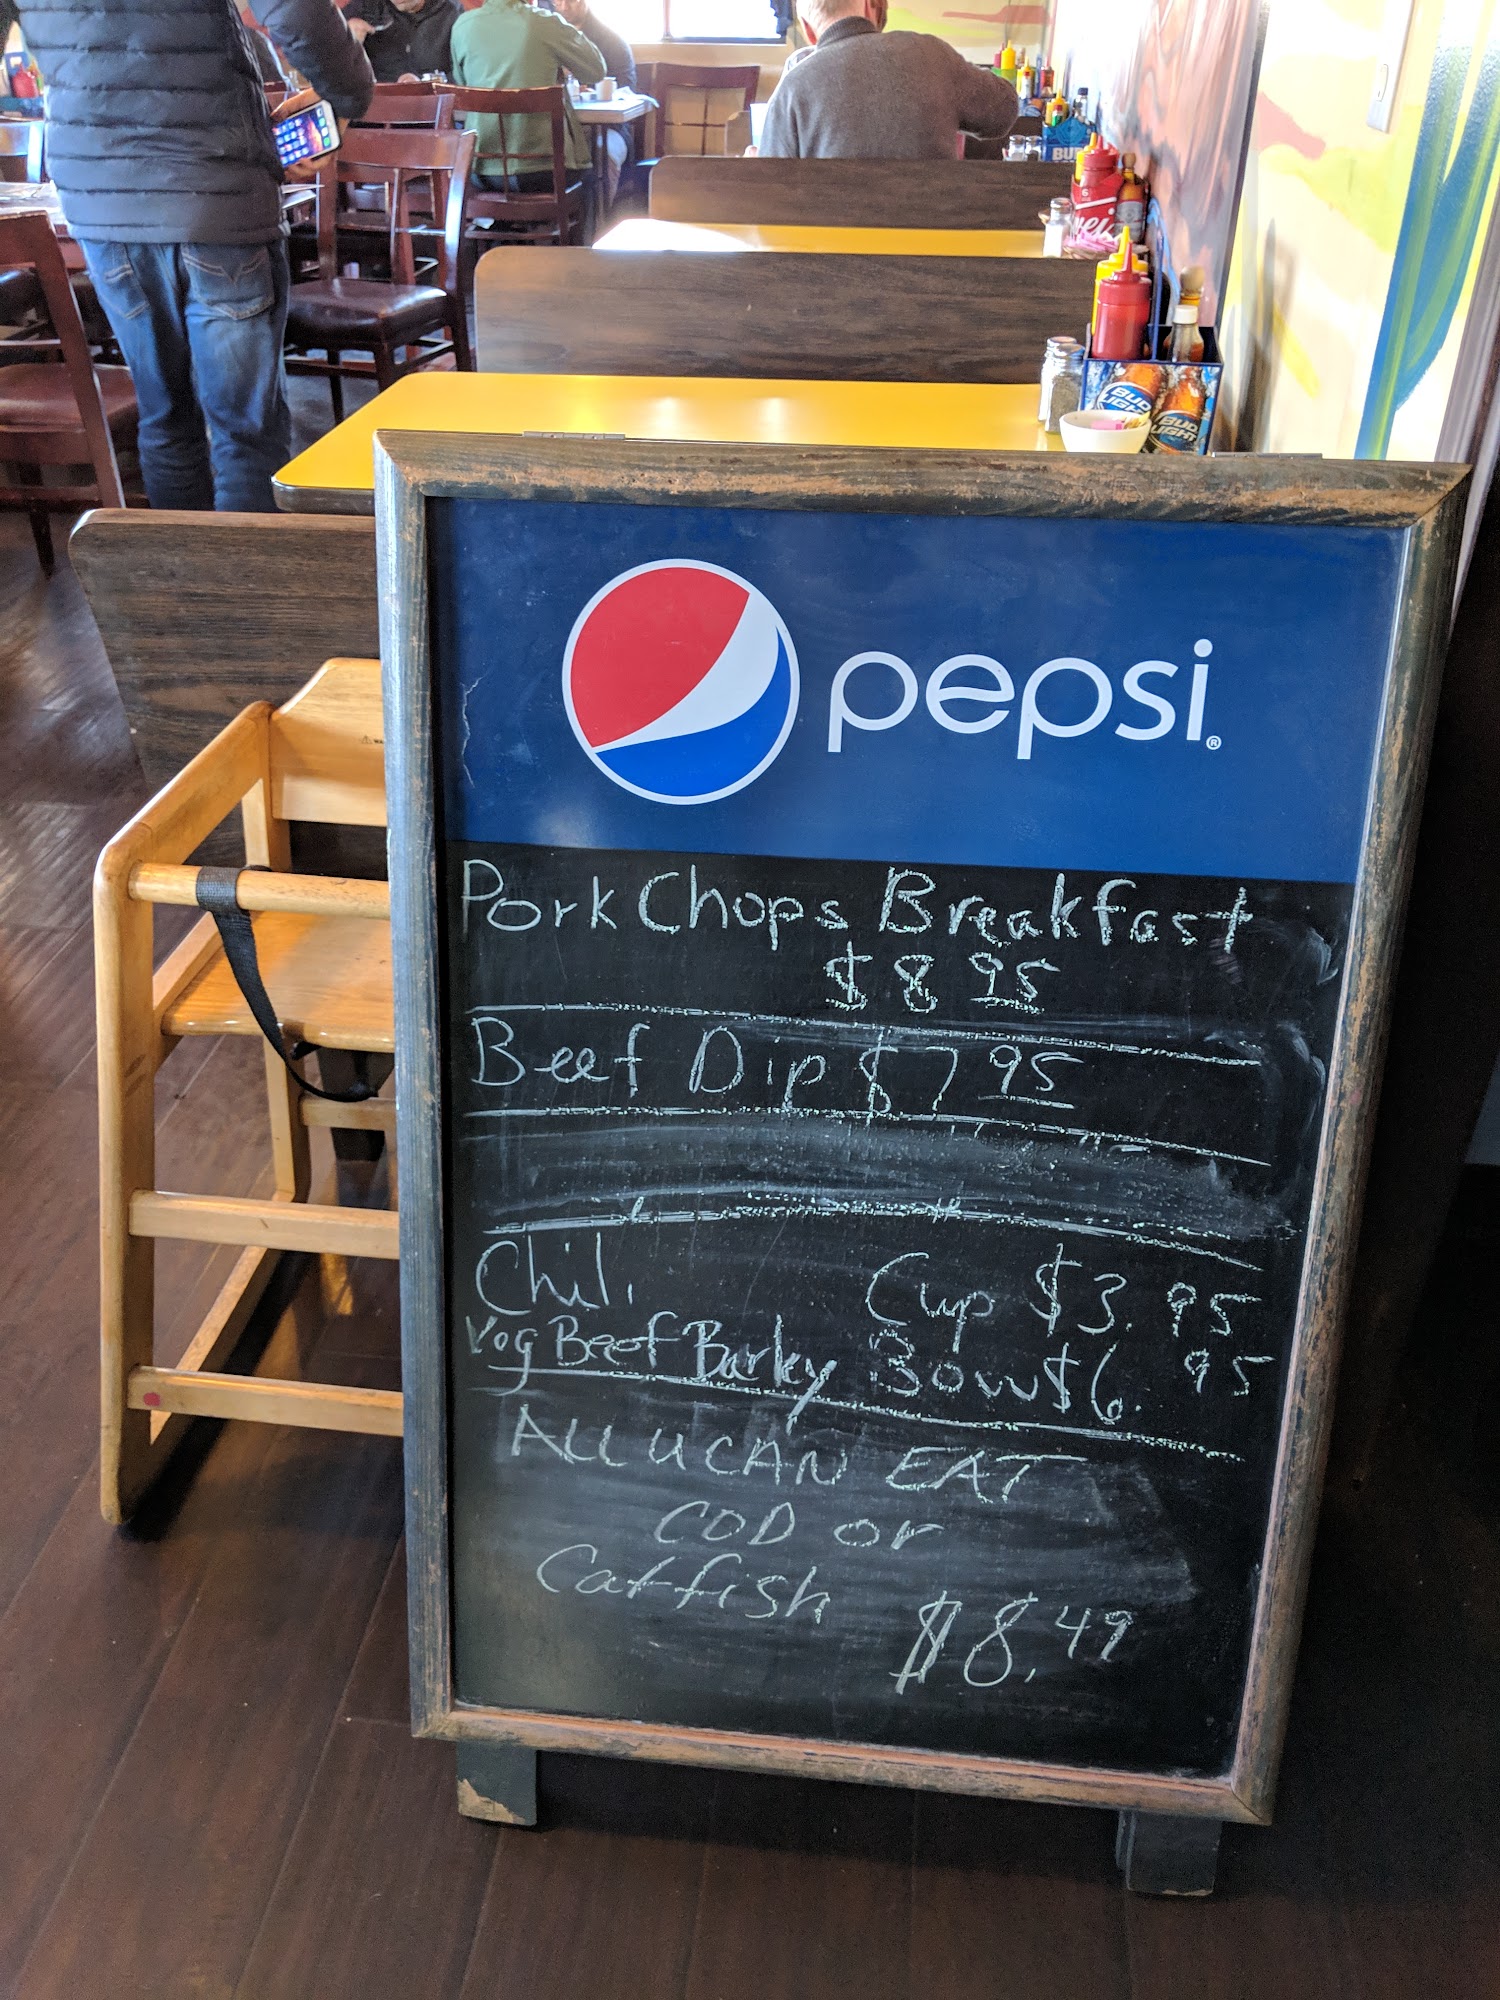 BUD LIGHT
BUD LIGHT
pepsi®
Pork Chops Breakfast
$8 95
Beef Dip $7 95
Chili Cup $3.95
Vog Beef Barley Bowl $6.95
ALL U CAN EAT
COD or
Catfish $8.49